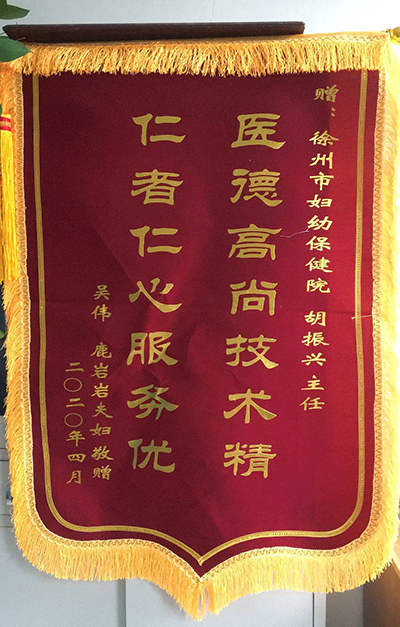 赠：徐州市妇幼保健院 胡振兴主任
医德高尚技术精
仁者仁心服务优
吴伟 鹿岩岩夫妇敬赠
二〇二〇年四月